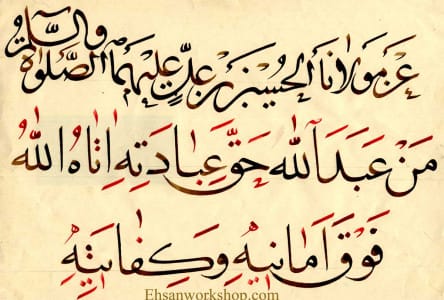 عَنْ مَوْلَانَا الْحُسَيْنِ بْنِ عَلِيٍّ عَلَيْهِمَا الصَّلَوٰةُ وَالسَّلَامُ
مَنْ عَبَدَ اللّٰهَ حَقَّ عِبَادَتِهِ اٰتَاهُ اللّٰهُ
فَوْقَ اَمَانِيهِ وَكِفَايَتِهِ
Ehsanworkshop.com